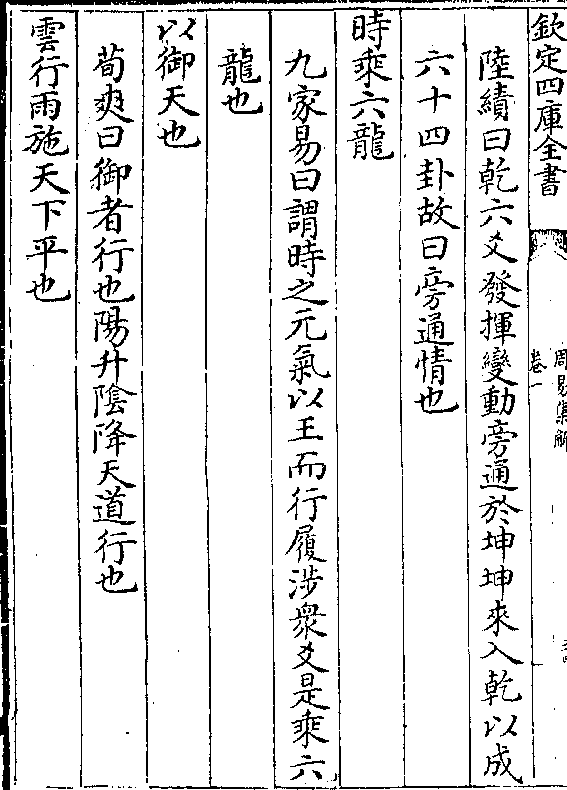 欽定四庫全書
周易集解
卷一
陸績曰乾六爻發揮變動旁通於坤坤來入乾以成
六十四卦故曰旁通情也
時乘六龍
九家易曰謂時之元氣以王而行履涉衆爻是乘六
龍也
以御天也
荀爽曰御者行也陽升陰降天道行也
雲行雨施天下平也